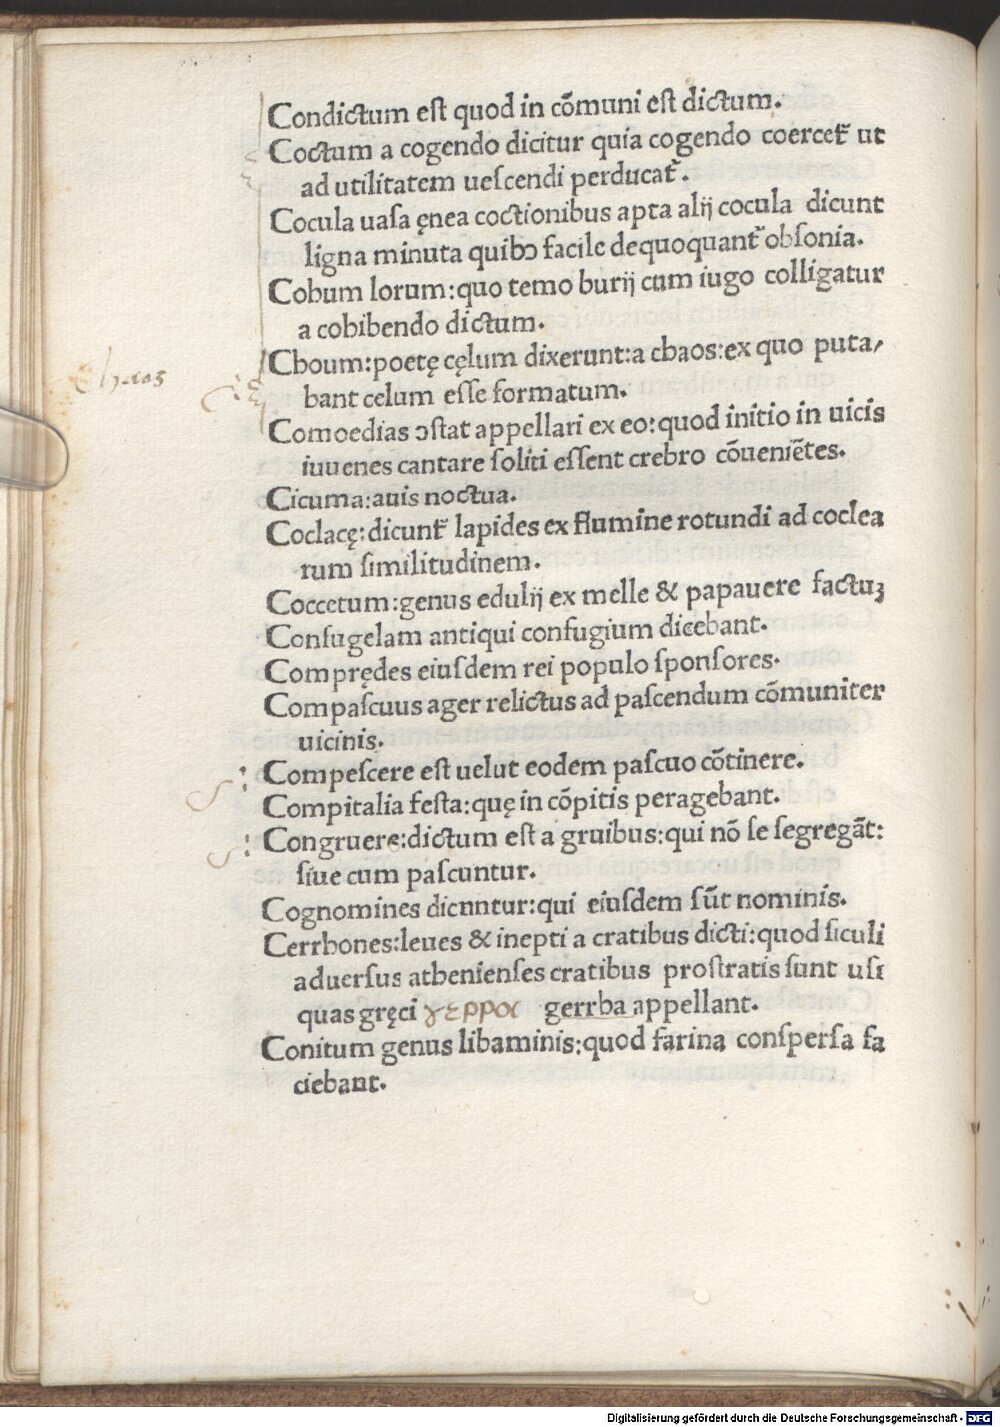 Condictum est quod in cōmuni est dictum.
Coctum a cogendo dicitur quia cogendo coercet᷑ ut
ad utilitatem uescendi perducat᷑.
Cocula uasa ęnea coctionibus apta alij cocula dicunt
ligna minuta quibꝫ facile dequoquant᷑ obsonia.
Cobum lorum:quo temo burij cum iugo colligatur
a cobibendo dictum.
chaos
Choum:poetę cęlum dixerunt:a chaos:ex quo puta/
bant celum esse formatum.
Comoedias ɔstat appellari ex eo:quod initio in uicis
iuuenes cantare soliti essent crebro cōueniētes.
Cicuma:auis noctua.
Coclacę:dicunt᷑ lapides ex flumine rotundi ad coclea
rum similitudinem.
Coccetum:genus edulij ex melle & papauere factuꝫ
Confugelam antiqui confugium dicebant.
Comprędes eiusdem rei populo sponsores.
Compascuus ager relictus ad pascendum cōmuniter
uicinis.
Compescere est uelut eodem pascuo cōtinere.
Compitalia festa:quę in cōpitis peragebant.
Congruere:dictum est a gruibus:qui nō se segregāt:
siue cum pascuntur.
Cognomines dicnntur:qui eiusdem sūt nominis.
Cerrbones:leues & inepti a cratibus dicti:quod siculi
aduersus atbenienses cratibus prostratis sunt usi
quas gręci γερρα gerrba appellant.
Conitum genus libaminis:quod farina conspersa fa
ciebant.
Digitalisierung gefördert durch die Deutsche Forschungsgemeinschaft - DFG